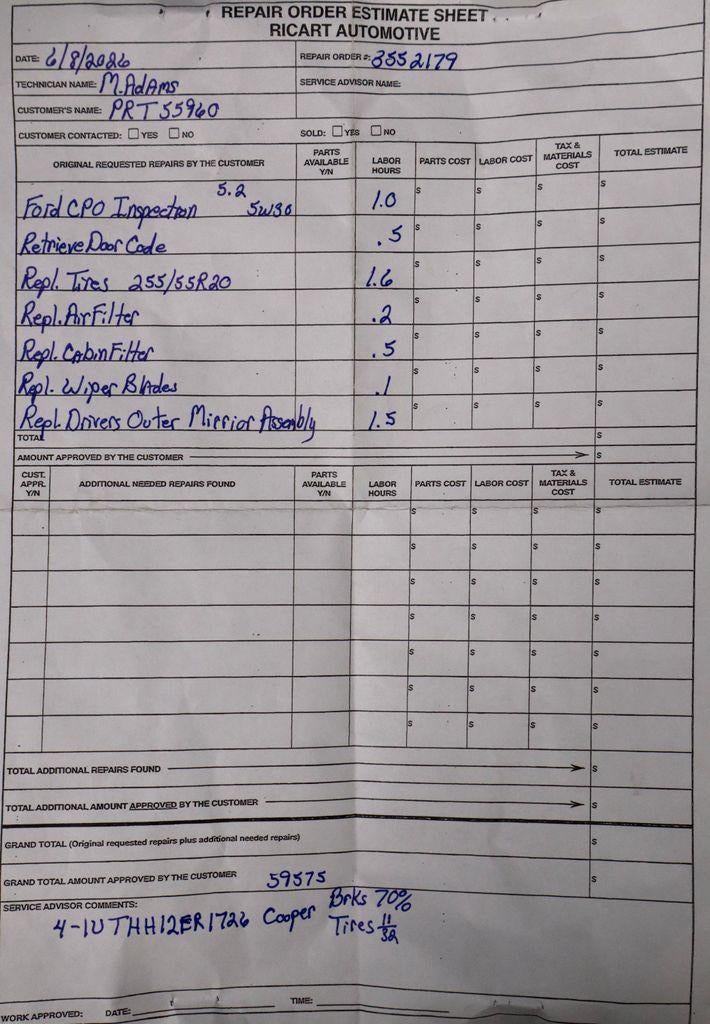 REPAIR ORDER ESTIMATE SHEET
RICART AUTOMOTIVE
DATE: 6/8/2026 REPAIR ORDER #: 3552179
TECHNICIAN NAME: M.AdAms SERVICE ADVISOR NAME:
CUSTOMER'S NAME: PRT55960
CUSTOMER CONTACTED: YES NO SOLD: YES NO
ORIGINAL REQUESTED REPAIRS BY THE CUSTOMER PARTS AVAILABLE Y/N LABOR HOURS PARTS COST LABOR COST TAX & MATERIALS COST TOTAL ESTIMATE
Ford CPO Inspection 5.2 5W30 1.0 $ $ $ $
Retrieve Door Code .5 $ $ $ $
Repl. Tires 255/55R20 1.6 $ $ $ $
Repl. Air Filter .2 $ $ $ $
Repl. Cabin Filter .5 $ $ $ $
Repl. Wiper Blades .1 $ $ $ $
Repl. Drivers Outer Mirrior Assembly 1.5 $ $ $ $
TOTAL $
AMOUNT APPROVED BY THE CUSTOMER $
CUST. APPR. Y/N ADDITIONAL NEEDED REPAIRS FOUND PARTS AVAILABLE Y/N LABOR HOURS PARTS COST LABOR COST TAX & MATERIALS COST TOTAL ESTIMATE
$ $ $ $
$ $ $ $
$ $ $ $
$ $ $ $
$ $ $ $
$ $ $ $
$ $ $ $
TOTAL ADDITIONAL REPAIRS FOUND $
TOTAL ADDITIONAL AMOUNT APPROVED BY THE CUSTOMER $
GRAND TOTAL (Original requested repairs plus additional needed repairs) $
GRAND TOTAL AMOUNT APPROVED BY THE CUSTOMER 59575 $
SERVICE ADVISOR COMMENTS:
4-1UTHH12ER1726 Cooper Brks 70%
Tires 11/32
WORK APPROVED: DATE: TIME: